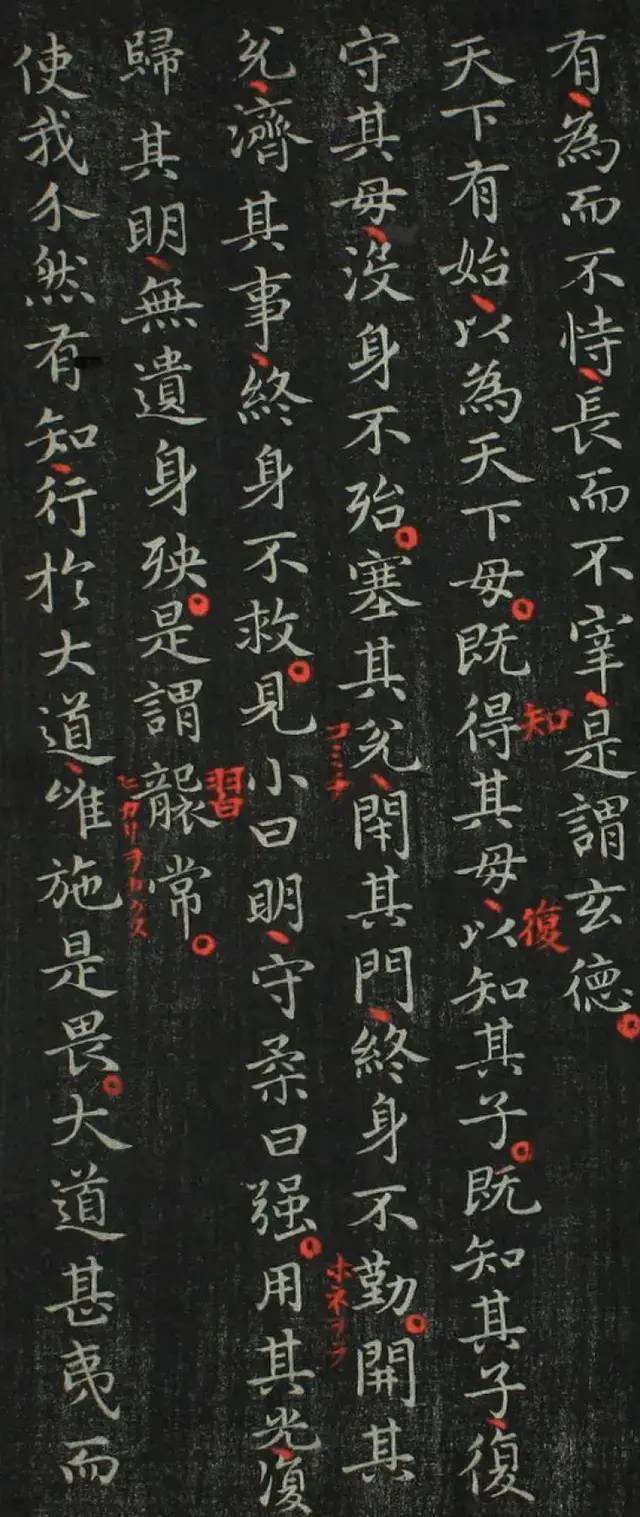 有為而不恃長而不宰是謂玄德
天下有始以為天下母既得其母以知其子既知其子復
知
復
守其母沒身不殆塞其兊閇其門終身不勤開其
コミチ
ホネヲラ
兊濟其事終身不救見小曰明守柔曰强用其光復
歸其明無遺身殃是謂襲常
習
ヒカリヲカクス
使我介然有知行於大道唯施是畏大道甚夷而